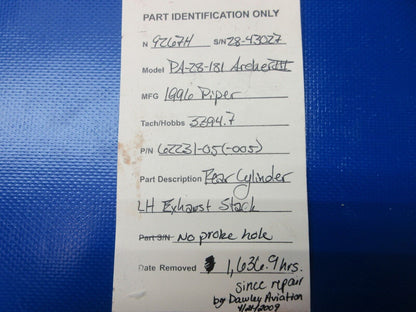 PART IDENTIFICATION ONLY
N 9267H S/N 28-43027
Model PA-28-181 Archer III
MFG 1996 Piper
Tach/Hobbs 3694.7
P/N 62231-05(-005)
Part Description Rear Cylinder
LH Exhaust Stack
Part S/N No probe hole
Date Removed 1,636.9 hrs.
since repair
by Dawley Aviation
4/21/2009